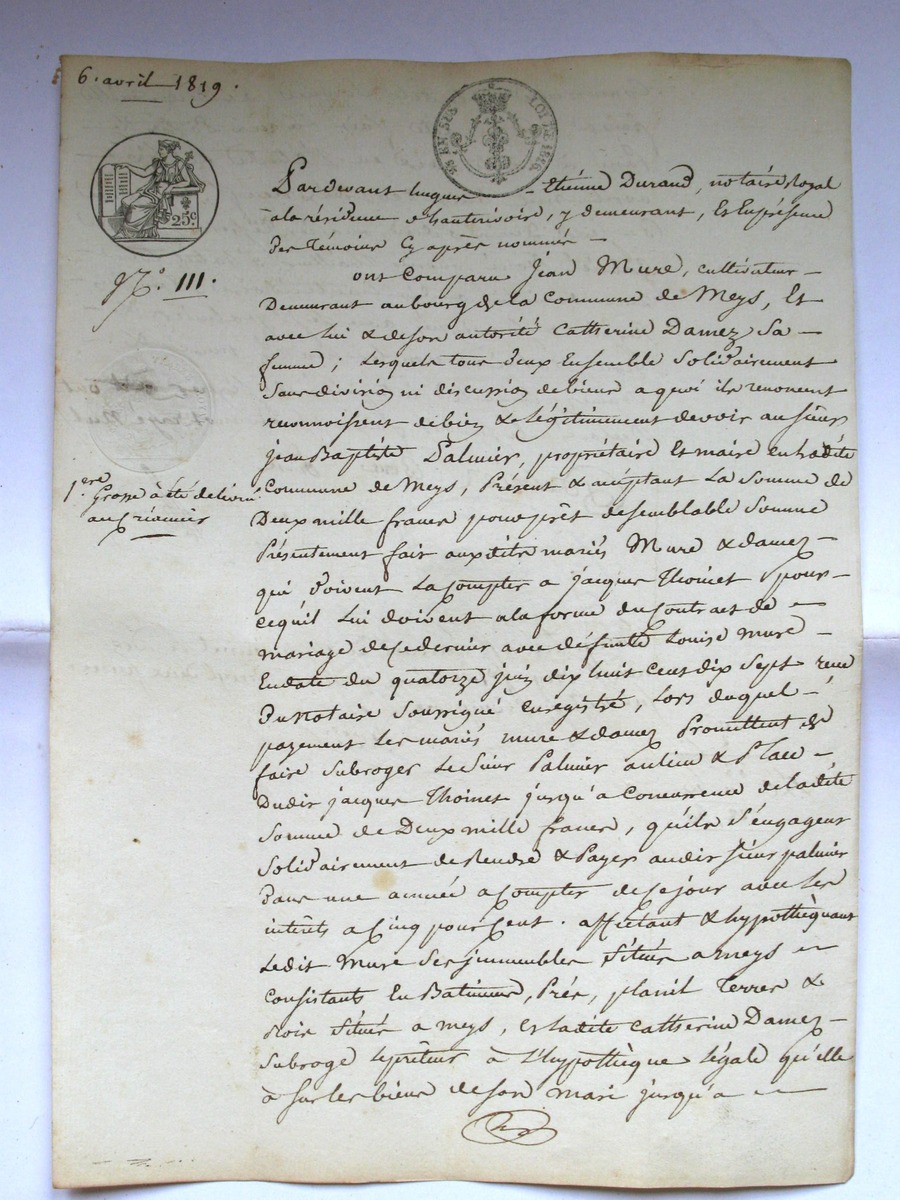 6. avril 1819.
25 EN SUS LOI DE 1816.
25c
Pardevant Etiénne Durand, notaire Royal
à la résidence d'hauterivoire, y demeurant, Et En présence
Des témoins Cy après nommés —
N.º 111.
ont Comparu Jean Mure, cultivateur —
Demeurant au bourg de la Commune de Meys, Et
avec Lui & de son autorité Catherine Damez Sa —
femme; Lesquels tous deux Ensemble Solidairement
Sans division ni discussion de biens a quoi ils renoncent
reconnoissent debien & Légitimement devoir au Sieur
jean Baptiste Palmier, propriétaire Et maire en ladite
1.ere Grosse à été délivré
au Créancier
Commune de Meys, Présent & acceptant La Somme de
Deux mille francs pour prêt de semblable Somme
Présentement fait auxdits mariés Mure & damez —
qui doivent La Compter a jacques Thoinet pour —
cequ'il Lui doivent a la forme du Contract de —
mariage de Ce dernier avec défunte Louise mure —
En date du quatorze juin dix huit cent dix Sept reçu
Du Notaire Soussigné Enrégistré, Lors duquel —
payement Les mariés mure & damez Promettent de
faire Subroger Le Sieur Palmier au lieu & Place —
Dudit jacques Thoinet jusqu'a Concurrence de ladite
Somme de Deux mille francs, qu'ils S'engagent
Solidairement de Rendre & Payer audit Sieur palmier
Dans une année a Compter de Ce jour avec Les
interêts a Cinq pour Cent. affectant & hypothèquant
Ledit Mure Ses jmmeubles Situés a meys —
Consistants En Batiments, Prés, Terres &
Bois Situés a meys, Et ladite Catherine Damez —
Subroge Le prêteur à L'hypothèque Légale qu'elle
à Sur Les biens de Son Mari jusqu'a —